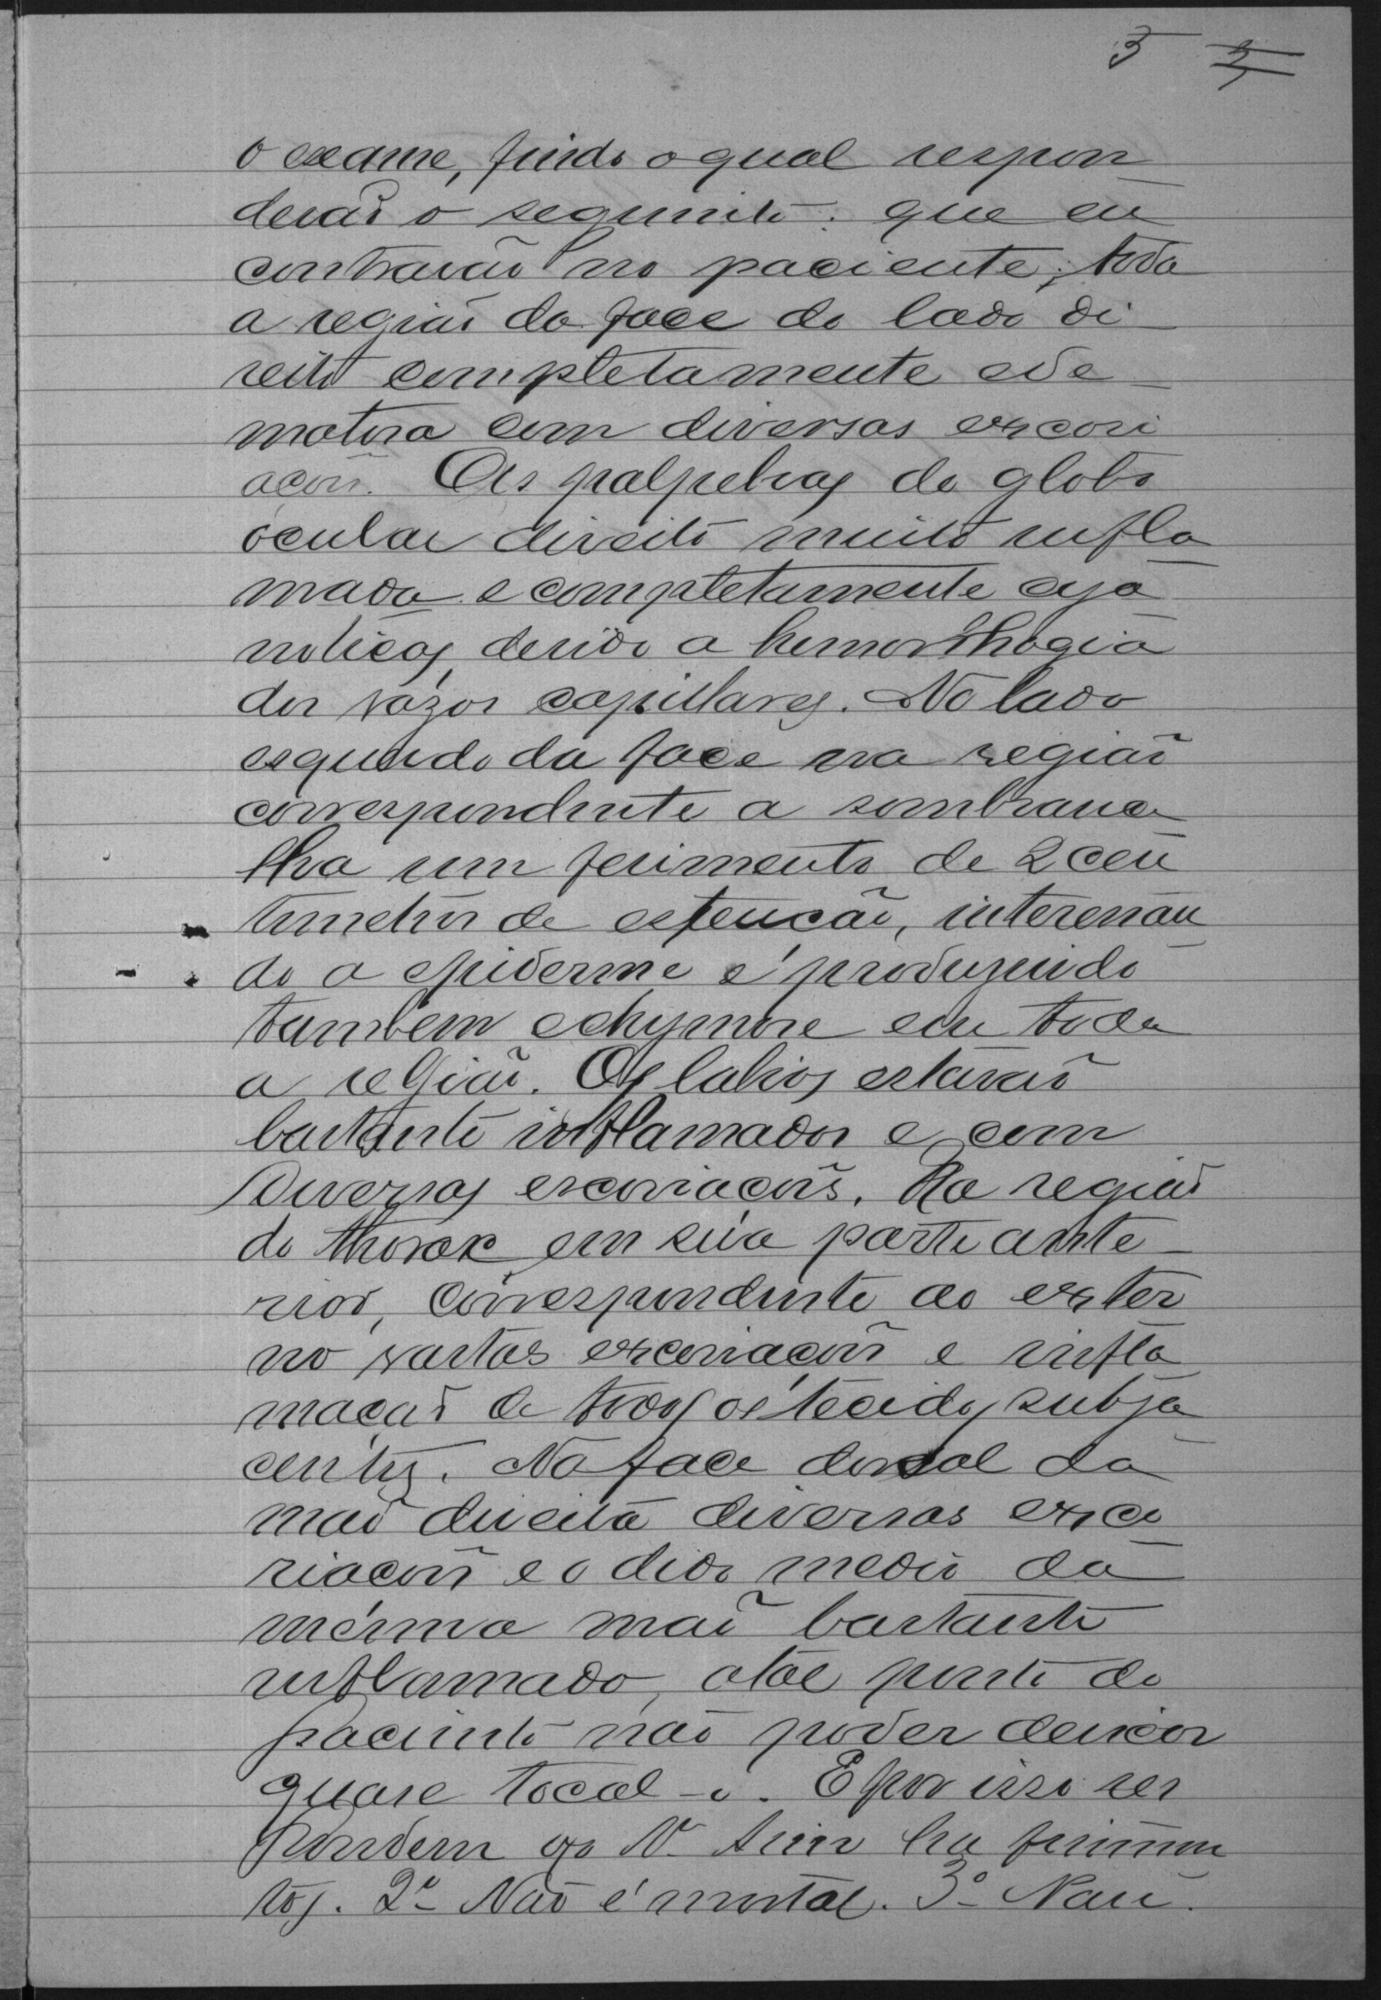 3 3
o exame, findo o qual respon
derão o seguinte: que en
contrarão no paciente, toda
a região da face do lado di-
reito completamente ede-
matosa com diversas excori
ações. As palpebras do globo
ocular direito muito infla
mada e completamente cya
noticas, devido a hemorrhagia
dos vazos capillares. No lado
esquerdo da face na região
correspondente a sombrance
lha um ferimento de 2 cen
timetros de estenção, interessan
do a epiderme e produzindo
tambem echymose em toda
a região. Os labios estavão
bastante inflamados e com
diversas escoriações. Na região
do thorax em sua parte ante-
rior, correspondente ao exter
no vastas excoriações e infla
mação de todos os tecidos subja
centes. Na face dorsal da
mão direita diversas exco
riações e o dido medio da
mesma mão bastante
inflamado, a tal ponto do
paciente não poder deixar
quase tocal-o. E por isso res
pondem ao 1º Sim ha ferimen
tos. 2º Não é mortal. 3º Não.